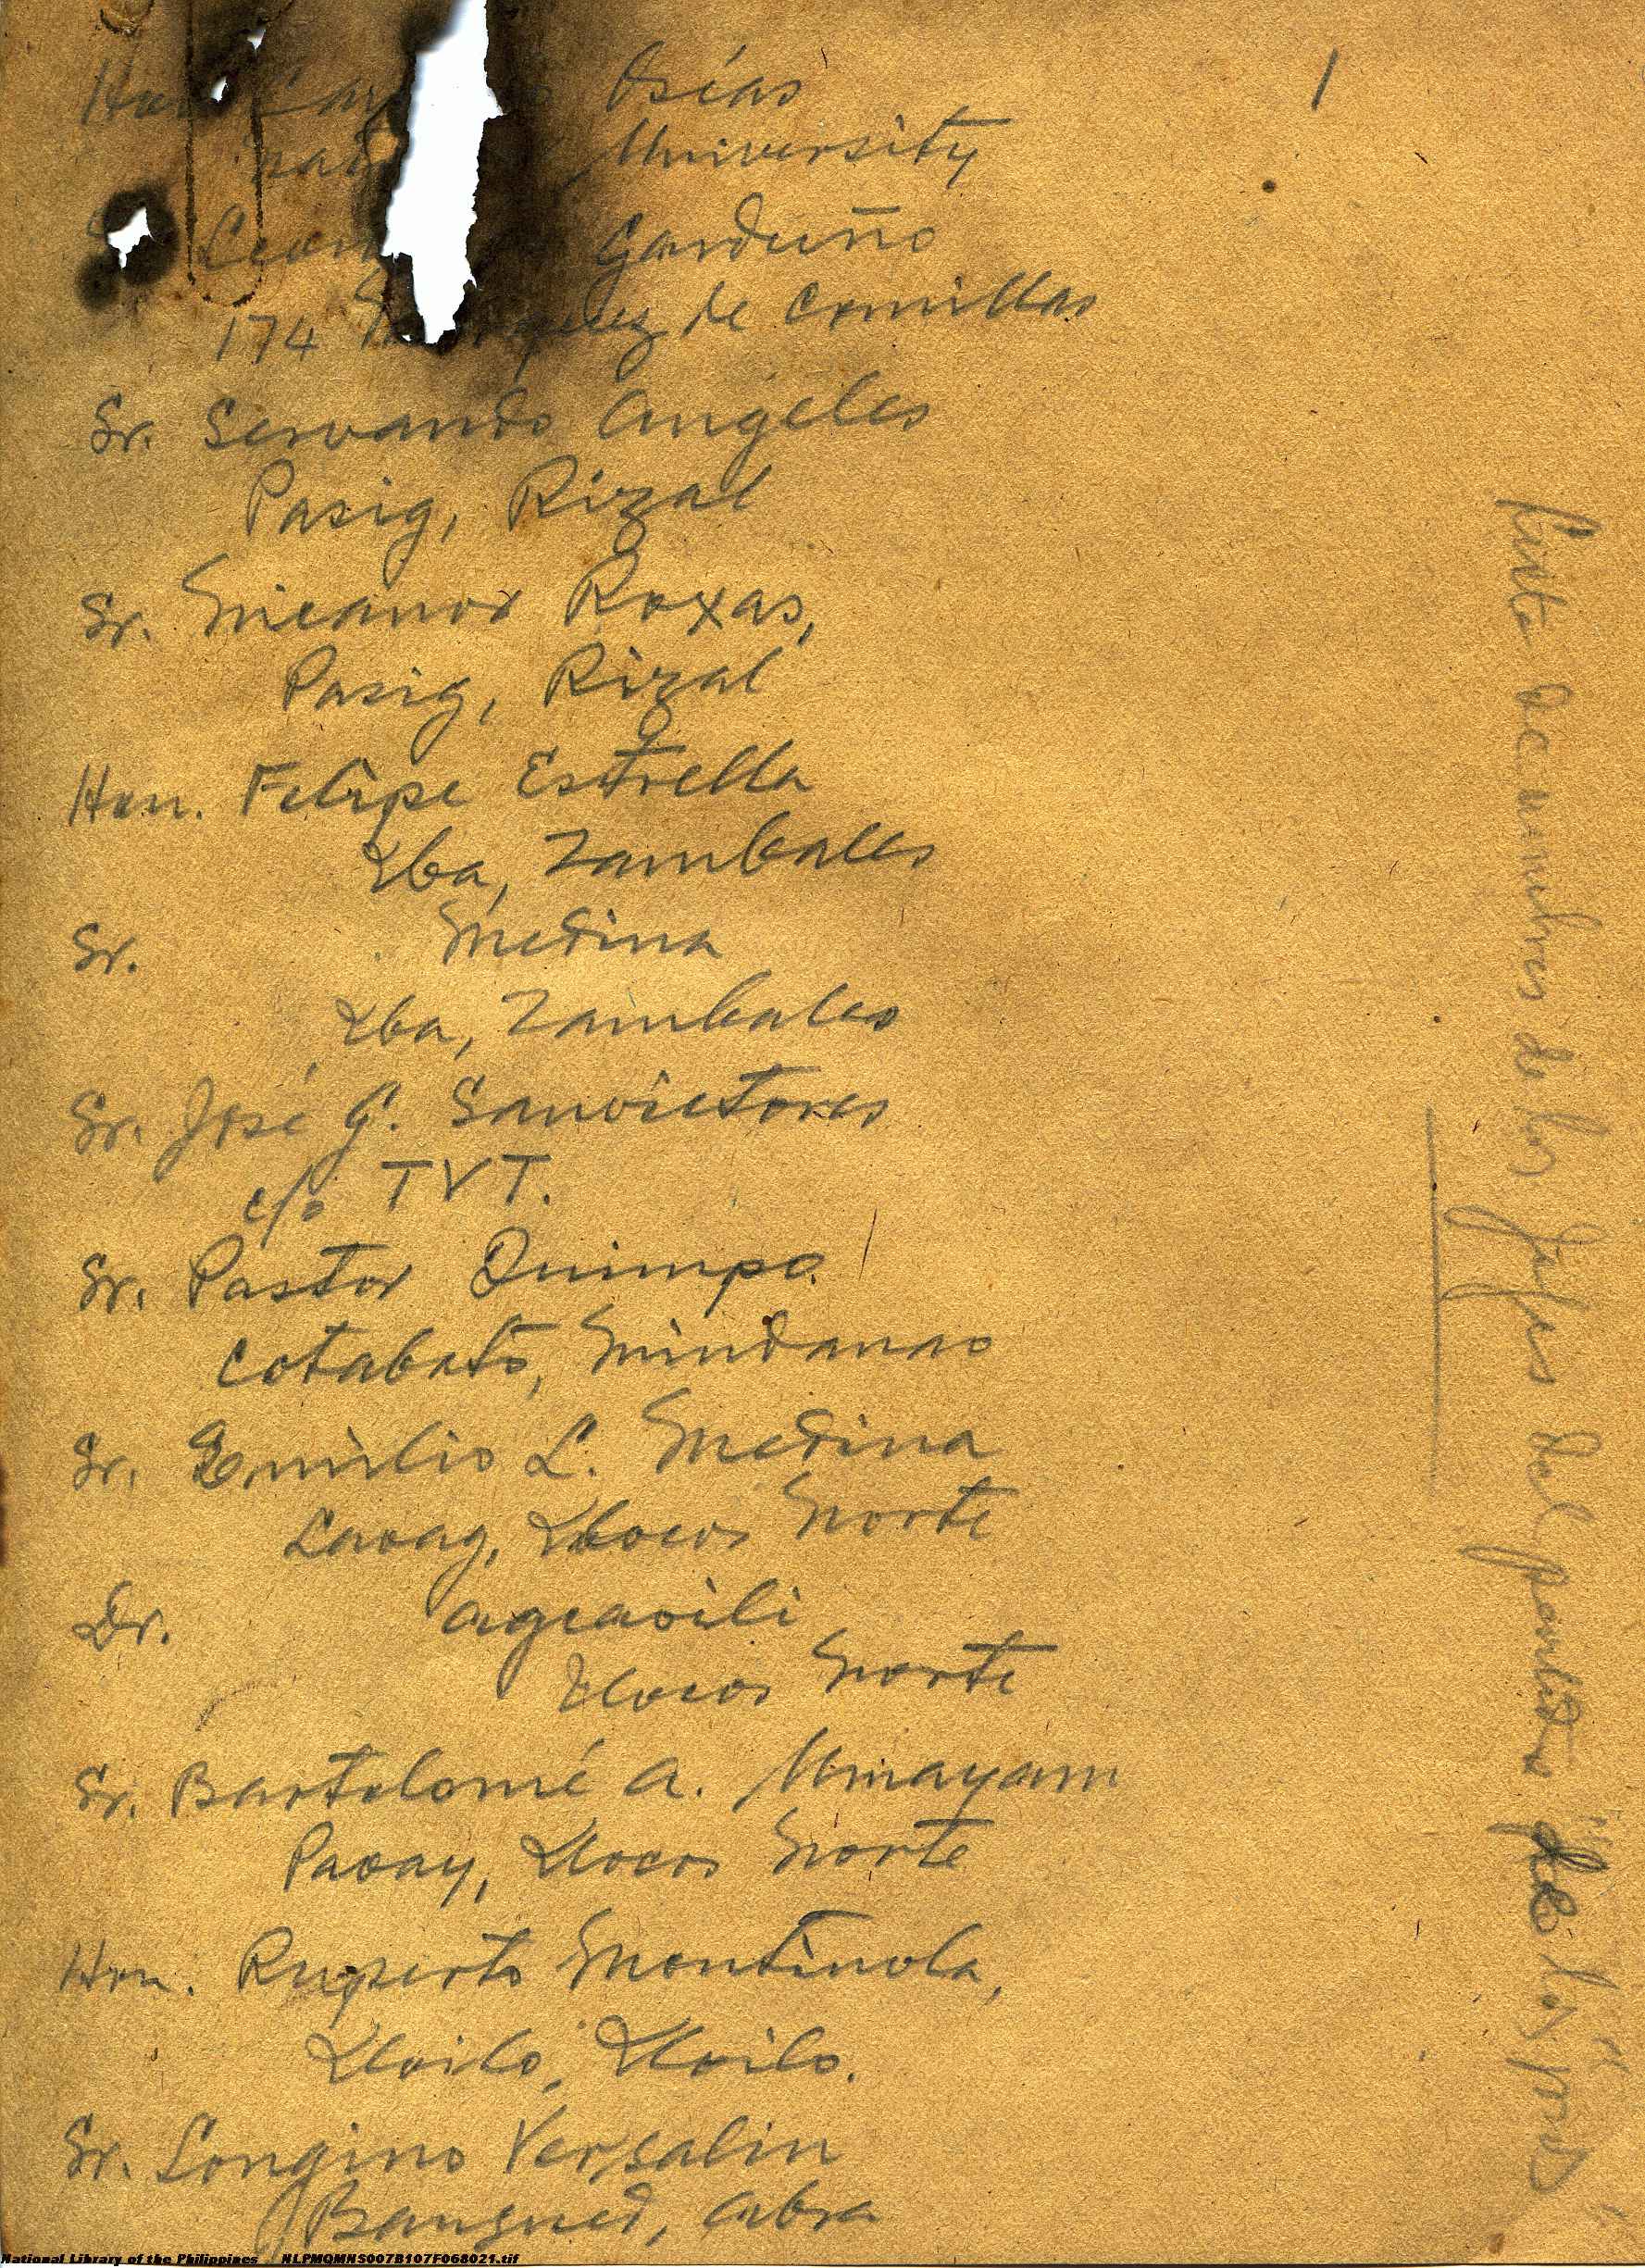 1
Hon. Osías
University
Garduño
174 de Comillas
Sr. Servando Angeles
Pasig, Rizal
Sr. Nicanor Roxas,
Pasig, Rizal
Hon. Felipe Estrella
Iba, Zambales
Sr. Medina
Iba, Zambales
Sr. José G. Sanvictores
c/o TVT.
Sr. Pastor Quimpo.
Cotabato, Mindanao
Sr. Emilio L. Medina
Laoag, Ilocos Norte
Dr. Agcaoili
Ilocos Norte
Sr. Bartolomé A. Umayam
Paoay, Ilocos Norte
Hon. Ruperto Montinola,
Iloilo, Iloilo.
Sr. Longino Versalin
Bangued, Abra
Lista de nombres de los Jefes del partido
National Library of the Philippines NLPMQMNS007B107F068021.tif